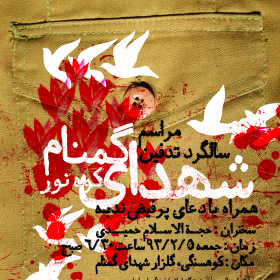 مراسم
سالگرد تدفین
شهدای گمنام
کوه نور
همراه با دعای پرفیض ندبه
سخنران : حجة الاسلام حمیدی
زمان : جمعه ۹۳/۲/۵ ساعت ۶/۳۰ صبح
مکان : کوهسنگی، گلزار شهدای گمنام